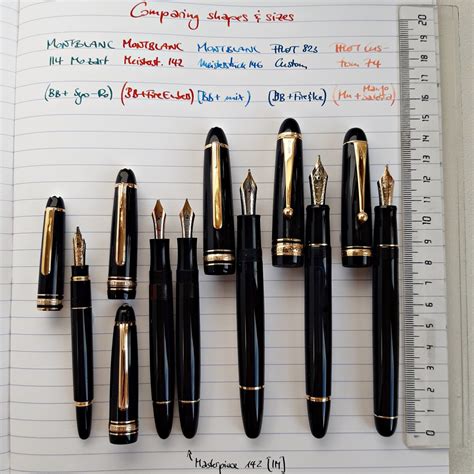 Comparing shapes & sizes
MONTBLANC MONTBLANC MONTBLANC PILOT 823 PILOT Cus-
114 Mozart Meisterst. 142 Meisterstück 146 Custom tom 74
(BB + Syo-Ro) (BB + [BB + mix) (BB +
20
19
18
17
16
15
14
13
12
11
10
9
8
7
6
5
4
3
2
1
0
Masterpiece 142